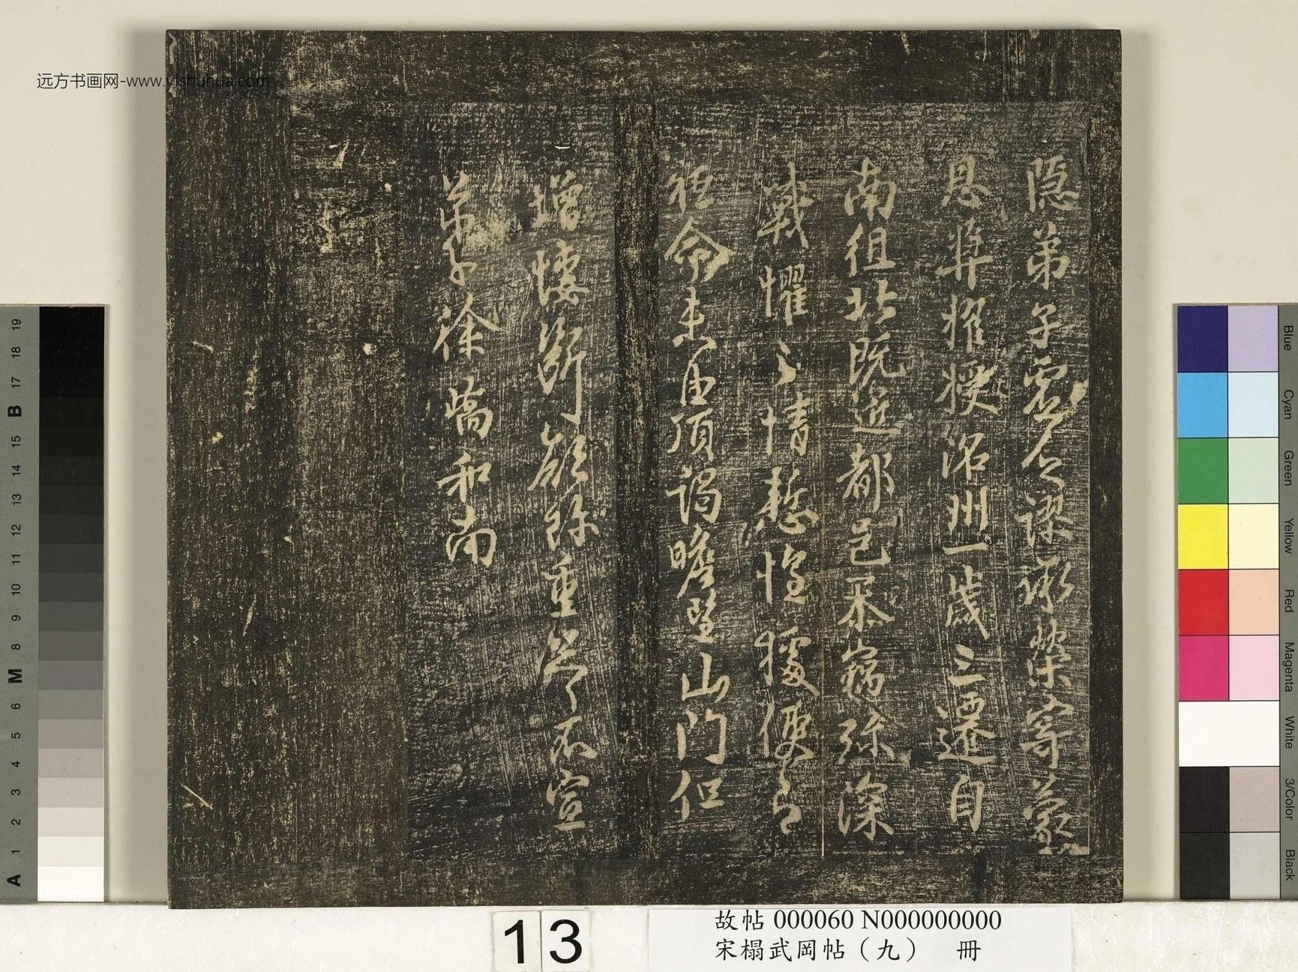 隱弟子虛乏謬承榮寄蒙
恩弉擢授洺州一歲三遷自
南徂北既近都邑忝竊弥深
戰懼之情慙惶便即
祗命未由頂謁瞻望山門但
增悽斷願珍重不宣
弟子徐嶠和南
远方书画网-www.yfshuhua.com
13
故帖 000060 N000000000
宋榻武岡帖（九） 冊
19
18
17
B
15
14
13
12
11
10
9
8
M
6
5
4
3
2
1
A
Blue
Cyan
Green
Yellow
Red
Magenta
White
3/Color
Black